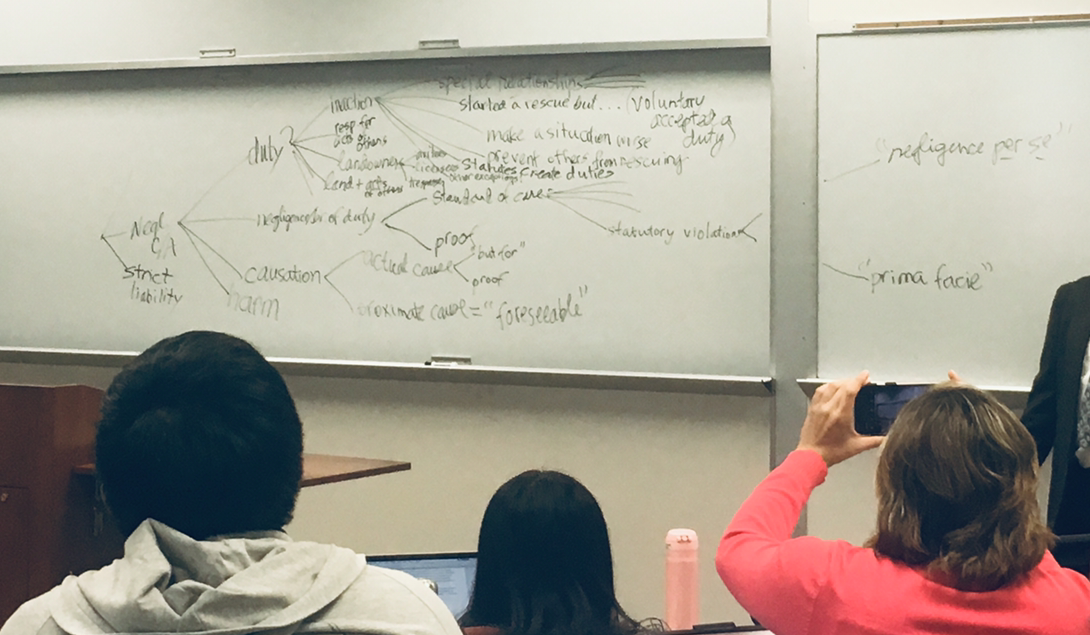 special relationships
inaction
started a rescue but... (voluntary
acceptance of
duty)
resp for
acts of
others
make a situation worse
duty
prevent others from rescuing
landowners
statutes create duties
land + acts
of others
standard of care
Negl
negligence
of duty
statutory violation
proof
strict
liability
causation
actual cause
"but for"
proof
harm
proximate cause = "foreseeable"
"negligence per se"
"prima facie"